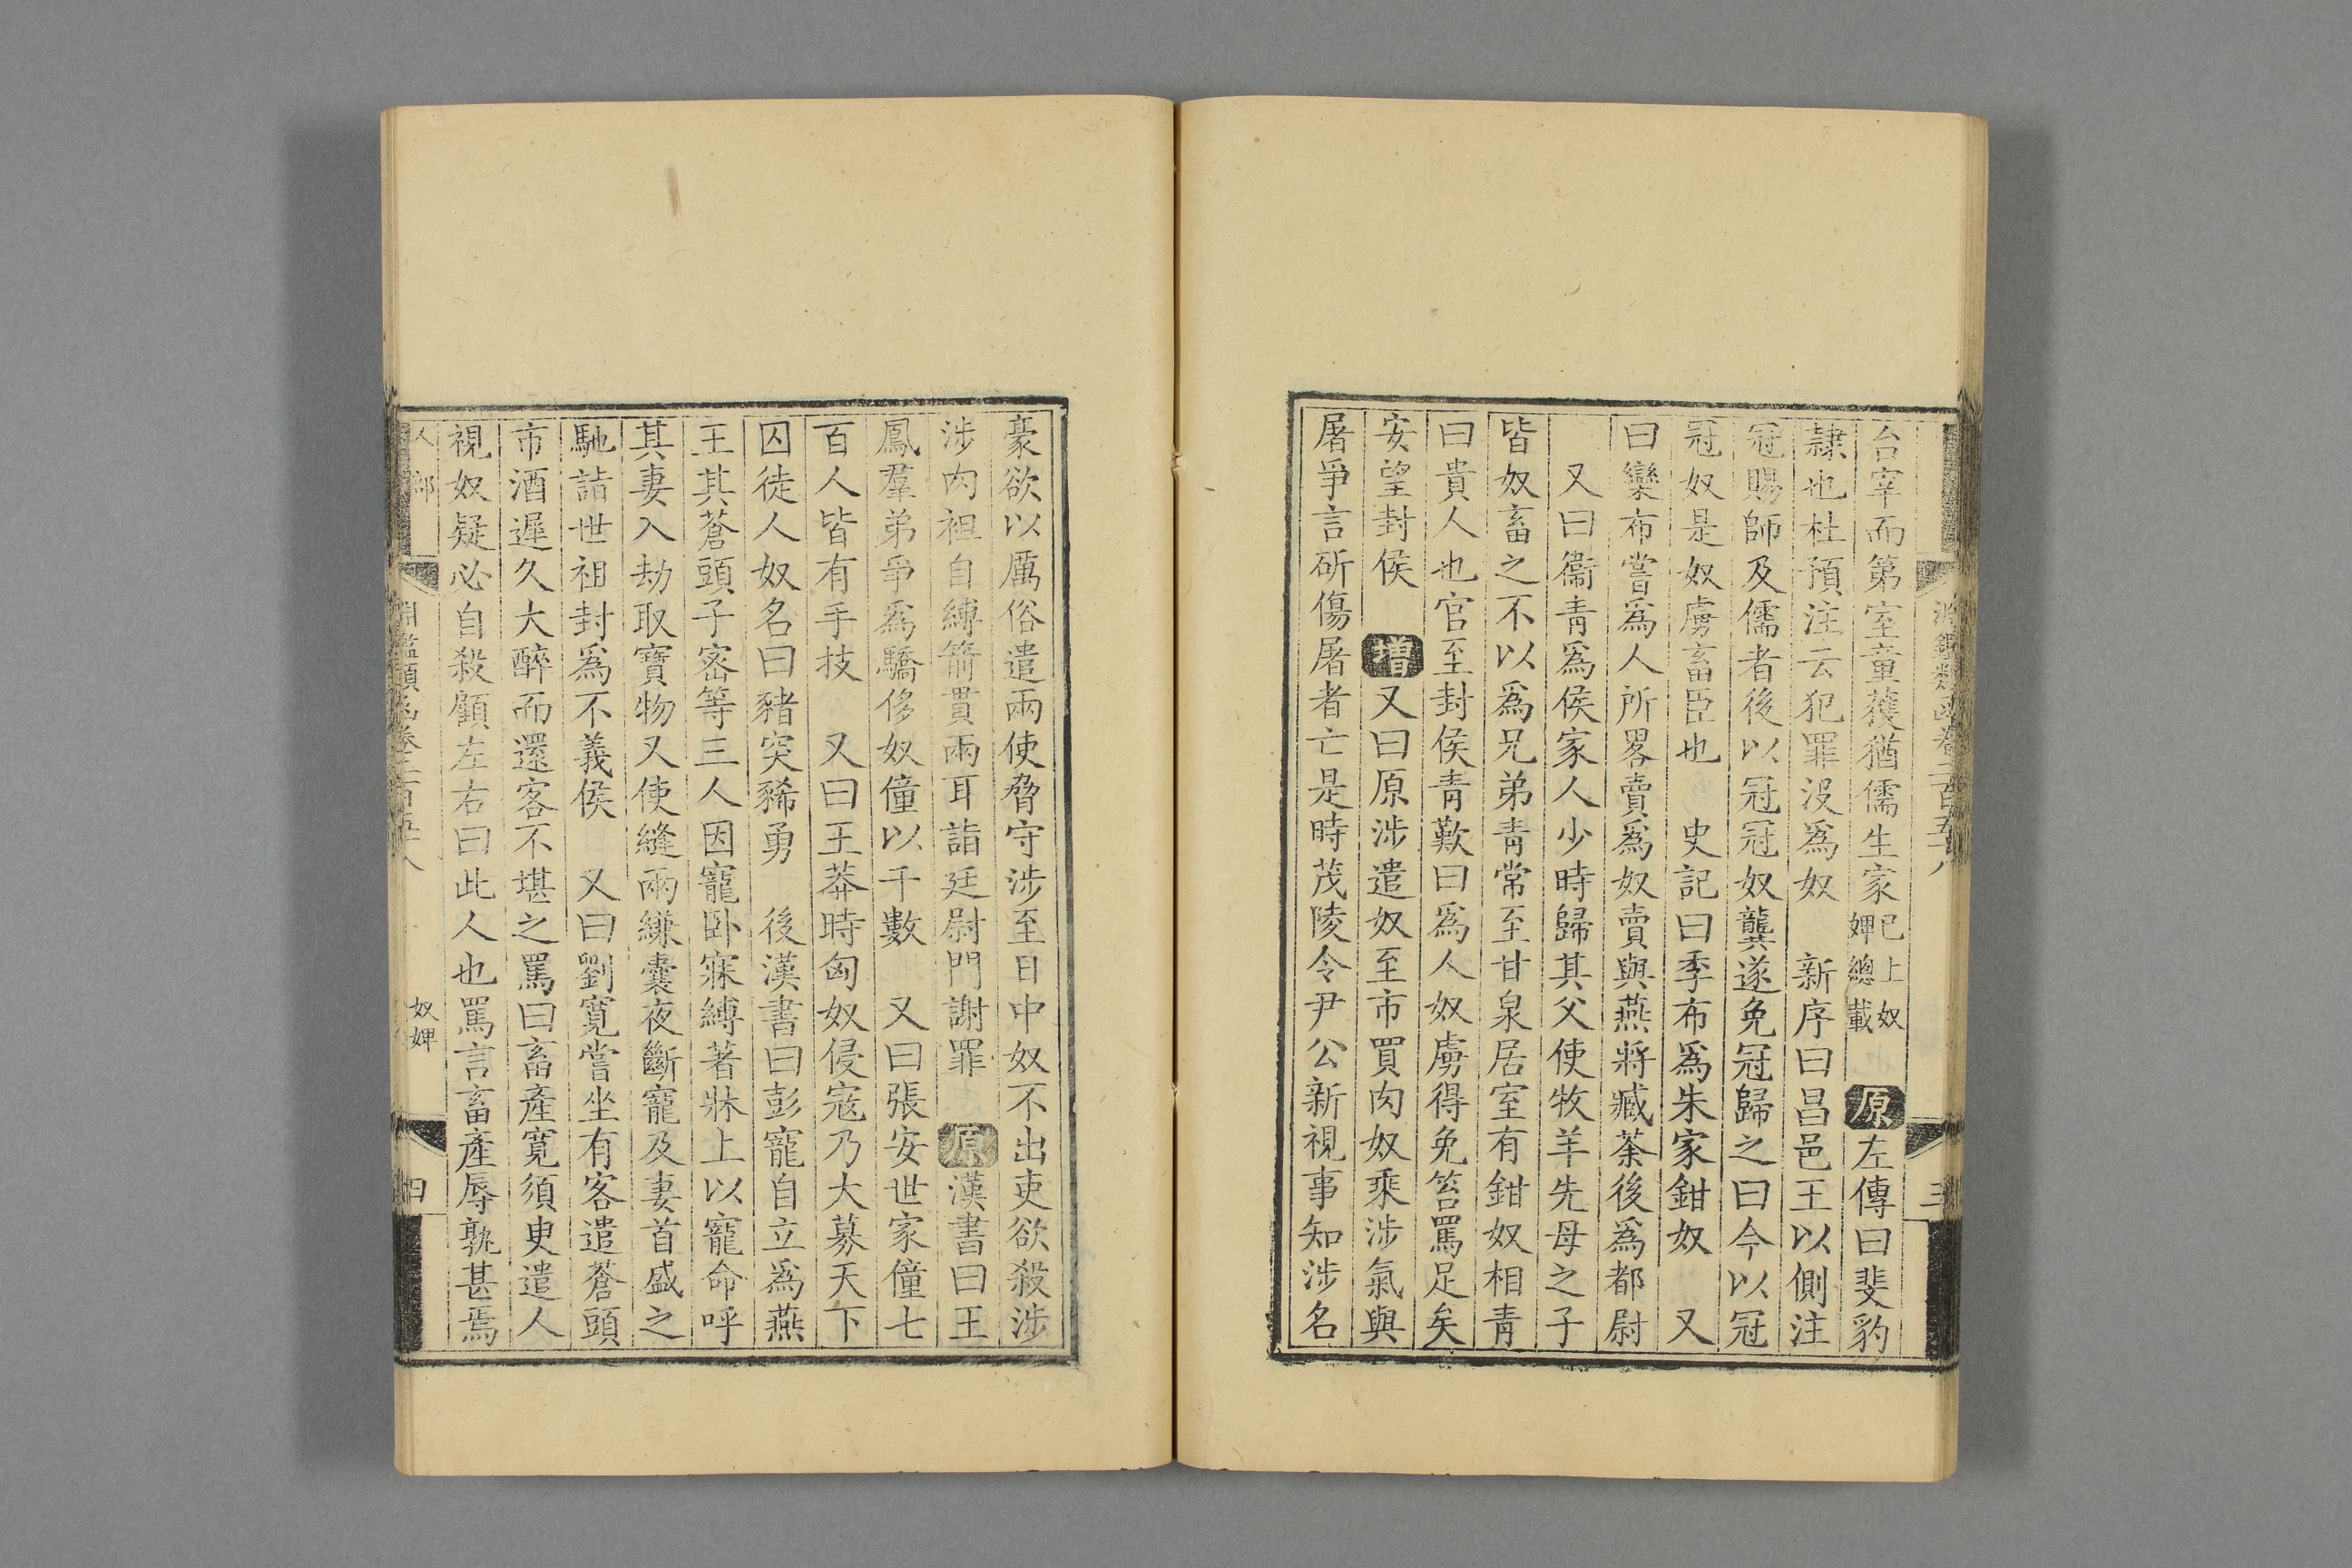 淵鑑類函卷二百五十八
三
台宰而第室童獲猶儒生家已上奴婢總載 原左傳曰斐豹
隸也杜預注云犯罪沒爲奴 新序曰昌邑王以側注
冠賜師及儒者後以冠冠奴龔遂免冠歸之曰今以冠
冠奴是奴虜畜臣也 史記曰季布爲朱家鉗奴 又
曰欒布嘗爲人所畧賣爲奴賣與燕將臧荼後爲都尉
又曰衞青爲侯家人少時歸其父使牧羊先母之子
皆奴畜之不以爲兄弟青常至甘泉居室有鉗奴相青
曰貴人也官至封侯青歎曰爲人奴虜得免笞罵足矣
安望封侯 增又曰原涉遣奴至市買肉奴乘涉氣與
屠爭言斫傷屠者亡是時茂陵令尹公新視事知涉名
豪欲以厲俗遣兩使脅守涉至日中奴不出吏欲殺涉
涉肉袒自縛箭貫兩耳詣廷尉門謝罪 原漢書曰王
鳳羣弟爭爲驕侈奴僮以千數 又曰張安世家僮七
百人皆有手技 又曰王莽時匈奴侵寇乃大募天下
囚徒人奴名曰豬突豨勇 後漢書曰彭寵自立爲燕
王其蒼頭子密等三人因寵卧寐縛著牀上以寵命呼
其妻入劫取寶物又使縫兩縑囊夜斷寵及妻首盛之
馳詣世祖封爲不義侯 又曰劉寬嘗坐有客遣蒼頭
市酒遲久大醉而還客不堪之罵曰畜產寬須臾遣人
視奴疑必自殺顧左右曰此人也罵言畜產辱孰甚焉
人部
淵鑑類函卷二百五十八
奴婢
四